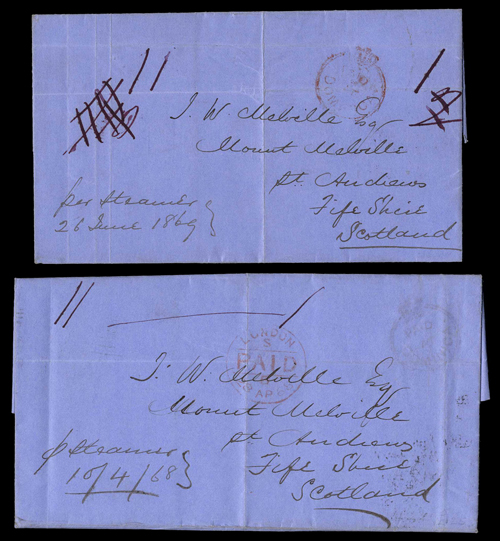 11
1
J. W. Melville Esqr
Mount Melville
St. Andrews
Fife Shire
Scotland
per Steamer
26 June 1869
11
1
LONDON
PAID
AP
J. W. Melville Esqr
Mount Melville
St Andrews
Fife Shire
Scotland
p Steamer
10/4/68